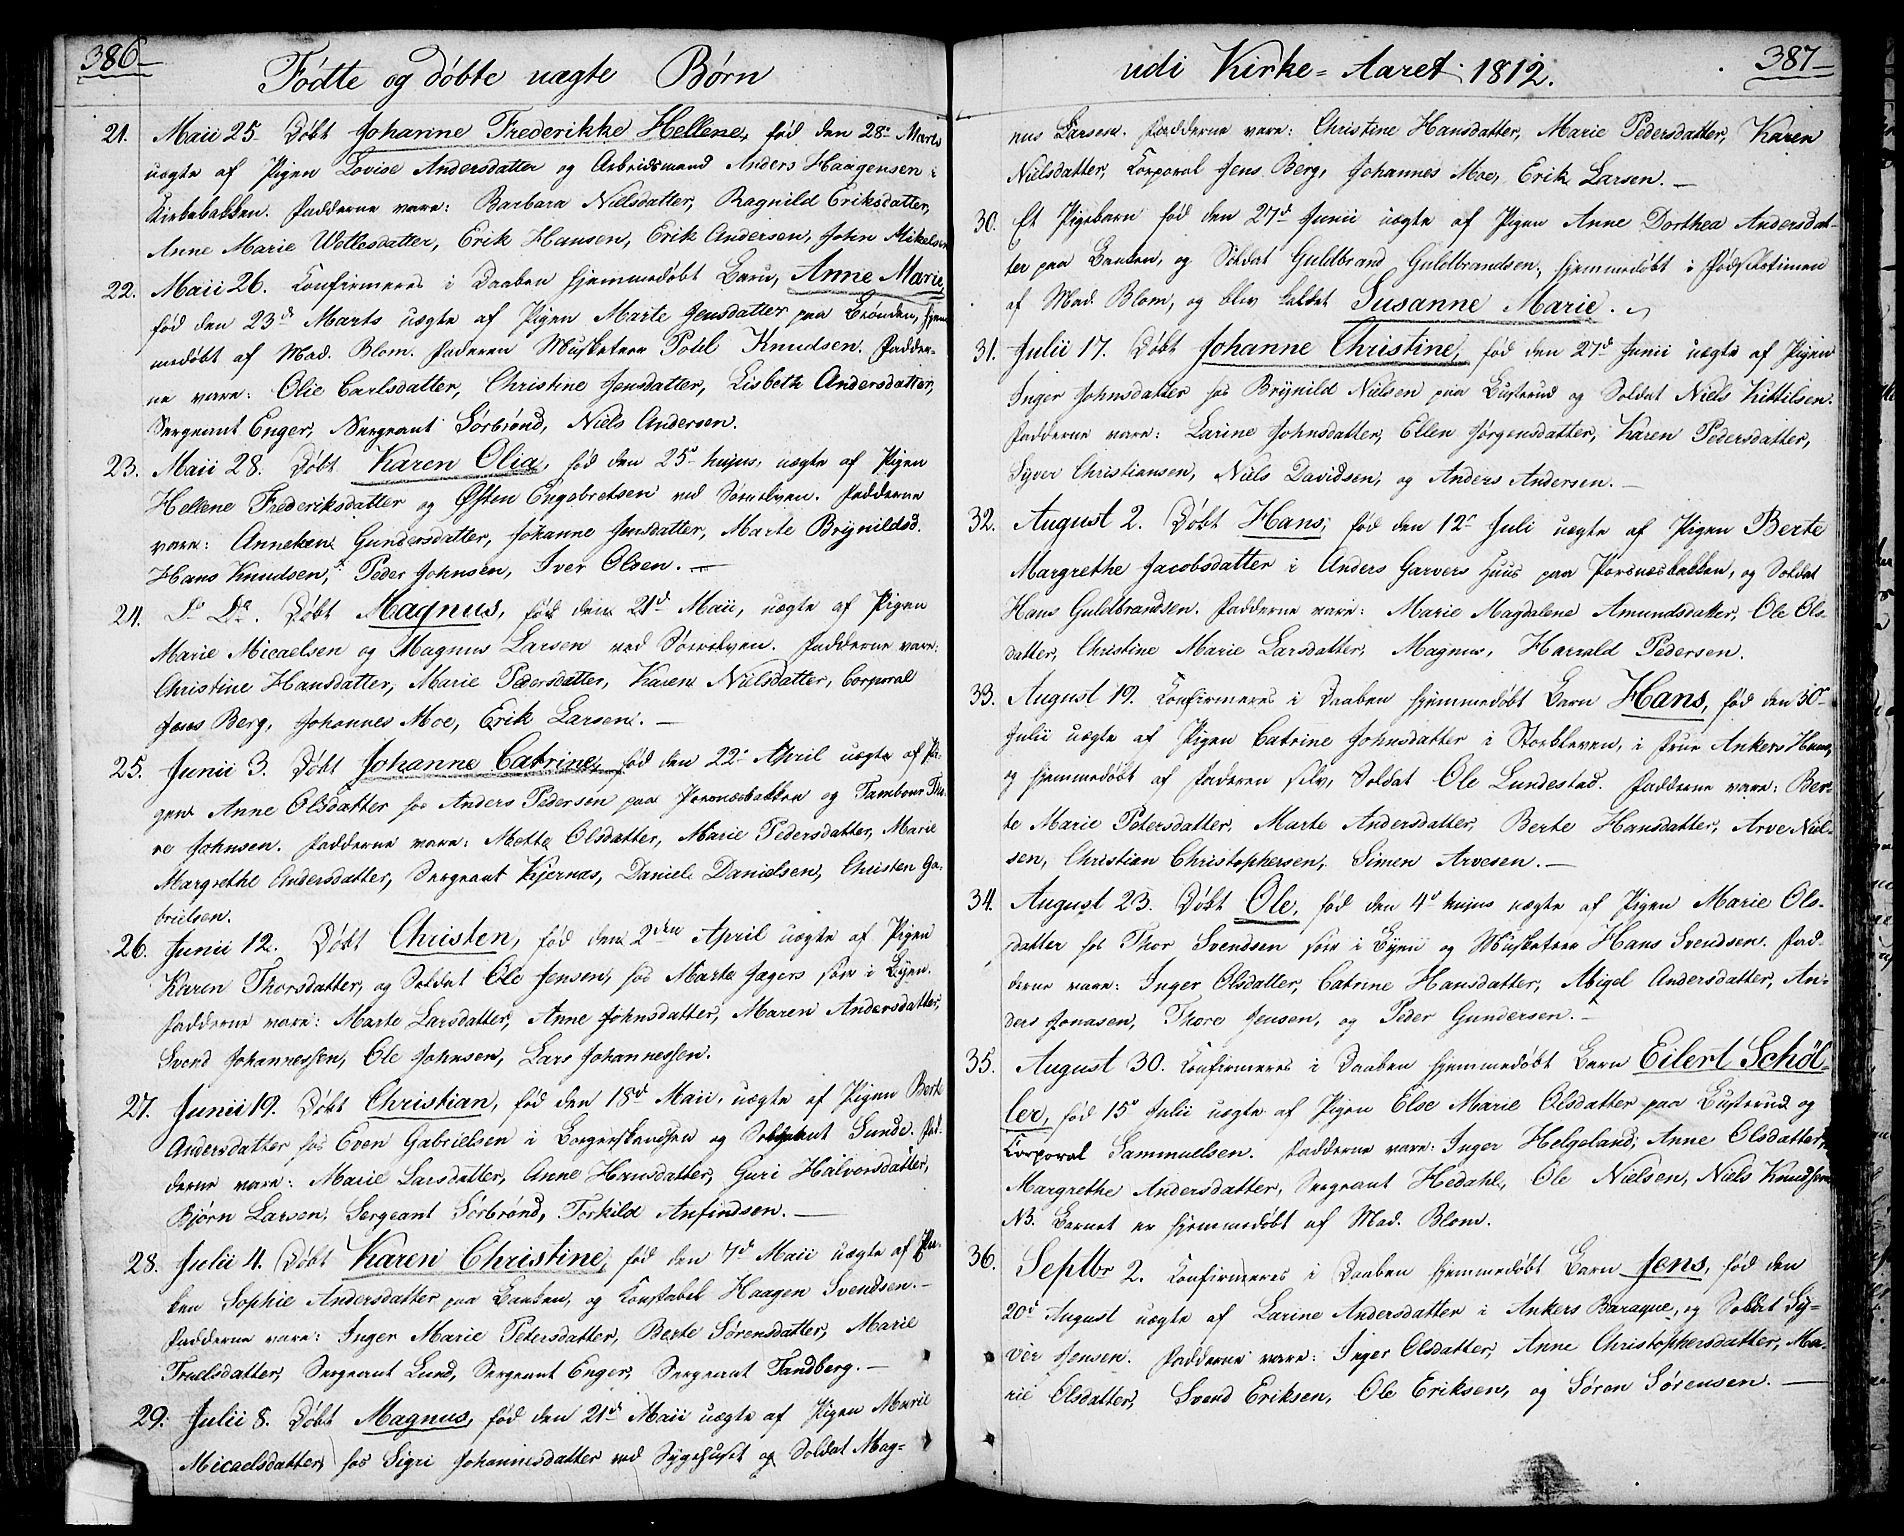 386
Fødte og døbte uægte Børn
21. Maii 25. Døbt Johanne Frederikke Hellene, fød den 28de Marts
uægte af Pigen Lovise Andersdatter og Arbeidsmand Anders Haagensen i
Kirkebakken. Fadderne vare: Barbara Nielsdatter, Ragnild Eriksdatter,
Anne Marie Wetlesdatter, Erik Hansen, Erik Andersen, John Mikelsen
22. Maii 26. Confirmeres i Daaben hjemmedøbt Barn, Anne Marie,
fød den 23d Marts uægte af Pigen Marte Jensdatter paa Brønden, hjem-
medøbt af Mad. Blom. Faderen Musketeer Pohl Knudsen. Fadder-
ne vare: Olie Carlsdatter, Christine Jensdatter, Lisbeth Andersdatter,
Sergeant Enger, Sergeant Sørbrønd, Niels Andersen.
23. Maii 28. Døbt Karen Olia, fød den 25d hujus, uægte af Pigen
Hellene Frederiksdatter og Østen Engebretsen ved Sørelven. Fadderne
vare: Anneken Gundersdatter, Johanne Jensdatter, Marte Brynildsd.
Hans Knudsen, Peder Johnsen, Iver Olsen. —
24. Do Do. Døbt Magnus, fød den 21d Maii, uægte af Pigen
Marie Micaelsen og Magnus Larsen ved Sørelven. Fadderne vare:
Christine Hansdatter, Marie Pedersdatter, Karen Nielsdatter, Corporal
Jens Berg, Johannes Moe, Erik Larsen. —
25. Junii 3. Døbt Johanne Catrine, fød den 22de April uægte af Pi-
gen Anne Olsdatter hos Anders Pedersen paa Porsnæsbakken og Tambour Tho-
re Johnsen. Fadderne vare: Mette Olsdatter, Marie Pedersdatter, Marie
Margrethe Andersdatter, Sergeant Kjernæs, Daniel Danielsen, Christen Ga-
brielsen.
26. Junii 12. Døbt Christen, fød den 2den April uægte af Pigen
Karen Thorsdatter, og Soldat Ole Jensen, hos Marte Jægers her i Byen.
Fadderne vare: Marte Larsdatter, Anne Johnsdatter, Maren Andersdatter,
Svend Johannessen, Ole Johnsen, Lars Johannessen.
27. Junii 19. Døbt Christian, fød den 18d Maii, uægte af Pigen Berte
Andersdatter hos Even Gabrielsen i Borgerskandsen og Sergeant Sunde. Fad-
derne vare: Marie Larsdatter, Anne Hansdatter, Guri Halvorsdatter,
Bjørn Larsen, Sergeant Sørbrønd, Torkild Anfindsen. —
28. Julii 4. Døbt Karen Christine, fød den 7d Maii uægte af En-
ken Sophie Andersdatter paa Banken, og Constabel Haagen Svendsen. —
Fadderne vare: Inger Marie Petersdatter, Berte Sørensdatter, Marie
Truelsdatter, Sergeant Lund, Sergeant Enger, Sergeant Tandberg. —
29. Julii 8. Døbt Magnus, fød den 21d Maii uægte af Pigen Marie
Micaelsdatter hos Sigri Johannisdatter ved Sygehuset og Soldat Mag-
387
udi Kirke-Aaret 1812.
nus Larsen. Fadderne vare: Christine Hansdatter, Marie Pedersdatter, Karen
Nielsdatter, Corporal Jens Berg, Johannes Moe, Erik Larsen. —
30. Et Pigebarn fød den 27d Junii uægte af Pigen Anne Dorthea Andersdat-
ter paa Banken, og Soldat Guldbrand Guldbrandsen, hjemmedøbt i Fødselstimen
af Mad. Blom, og blev kaldet Susanne Marie.
31. Julii 17. Døbt Johanne Christine, fød den 27d Junii uægte af Pigen
Inger Johnsdatter hos Brynild Nielsen paa Busterud og Soldat Niels Kittilsen.
Fadderne vare: Larine Johnsdatter, Ellen Jørgensdatter, Karen Pedersdatter,
Syver Christiansen, Niels Davidsen, og Anders Andersen. —
32. August 2. Døbt Hans, fød den 12te Juli uægte af Pigen Berte
Margrethe Jacobsdatter i Anders Garvers Huus paa Porsnæsbakken, og Soldat
Hans Guldbrandsen. Fadderne vare: Marie Magdalena Amundsdatter, Ole Ols-
datter, Christine Marie Larsdatter, Magnus, Harrald Pedersen.
33. August 19. Confirmeres i Daaben hjemmedøbt Barn Hans, fød den 30te
Julii uægte af Pigen Catrine Johnsdatter i Storkleven, i Frue Ankers Huus,
og hjemmedøbt af Faderen selv, Soldat Ole Lundestad. Fadderne vare: Ber-
te Marie Petersdatter, Marte Andersdatter, Berte Hansdatter, Arve Niel-
sen, Christian Christophersen, Simen Arvesen. —
34. August 23. Døbt Ole, fød den 4d hujus uægte af Pigen Marie Ols-
datter hos Thor Svendsen her i Byen og Musketeer Hans Svendsen. Fad-
derne vare: Inger Olsdatter, Catrine Hansdatter, Abigel Andersdatter, An-
ders Jonasen, Thore Jensen, og Peder Gundersen. —
35. August 30. Confirmeres i Daaben hjemmedøbt Barn Eilert Schøl-
ler, fød 15d Julii uægte af Pigen Else Marie Olsdatter paa Busterud og
Corporal Sammuelsen. Fadderne vare: Inger Helgeland, Anne Olsdatter,
Margrethe Andersdatter, Sergeant Hedahl, Ole Nielsen, Niels Knudsen
NB. Barnet er hjemmedøbt af Mad. Blom.
36. Septbr 2. Confirmeres i Daaben hjemmedøbt Barn Jens, fød den
20d August uægte af Larine Andersdatter i Ankers Baraque, og Soldat Sy-
ver Jensen. Fadderne vare: Inger Olsdatter, Anne Christophersdatter, Ma-
rie Olsdatter, Svend Eriksen, Ole Eriksen, og Søren Sørensen. —